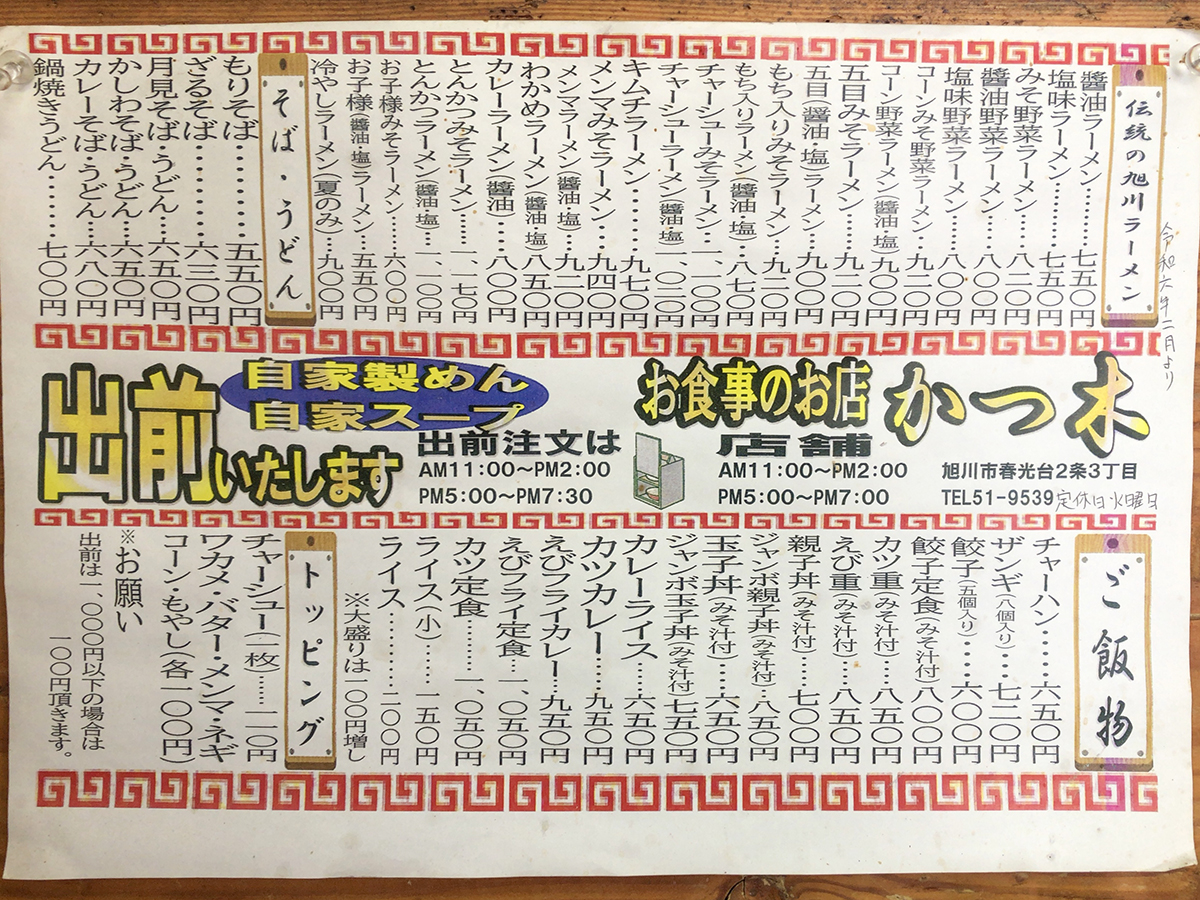 伝統の旭川ラーメン
令和六年二月より
醬油ラーメン……七五〇円
塩味ラーメン……七五〇円
みそ野菜ラーメン…八二〇円
醬油野菜ラーメン…八〇〇円
塩味野菜ラーメン…八〇〇円
コーンみそ野菜ラーメン…九二〇円
コーン野菜ラーメン(醬油・塩)九〇〇円
五目みそラーメン……九二〇円
五目(醬油・塩)ラーメン…九〇〇円
もち入りみそラーメン…九二〇円
もち入りラーメン(醬油・塩)…八七〇円
チャーシューみそラーメン…一、一〇〇円
チャーシューラーメン(醬油・塩)一、〇二〇円
キムチラーメン……九七〇円
メンマみそラーメン…九四〇円
メンマラーメン(醬油・塩)…九二〇円
わかめラーメン(醬油・塩)八五〇円
カレーラーメン(醬油)…八〇〇円
とんかつみそラーメン…一、一七〇円
とんかつラーメン(醬油・塩)…一、一〇〇円
お子様みそラーメン……六〇〇円
お子様(醬油・塩)ラーメン…五五〇円
冷やしラーメン(夏のみ)…九〇〇円
そば・うどん
もりそば…………五五〇円
ざるそば…………六三〇円
月見そば・うどん…六五〇円
かしわそば・うどん…六五〇円
カレーそば・うどん…六八〇円
鍋焼きうどん………七〇〇円
お食事のお店 かつ木
店舗
AM11:00〜PM2:00
PM5:00〜PM7:00
旭川市春光台2条3丁目
TEL51-9539 定休日 火曜日
自家製めん
自家スープ
出前いたします
出前注文は
AM11:00〜PM2:00
PM5:00〜PM7:30
ご飯物
チャーハン……六五〇円
ザンギ(八個入り)…七二〇円
餃子(五個入り)…六〇〇円
餃子定食(みそ汁付)八〇〇円
カツ重(みそ汁付)…八五〇円
えび重(みそ汁付)…八五〇円
親子丼(みそ汁付)…七〇〇円
ジャンボ親子丼(みそ汁付)…八五〇円
玉子丼(みそ汁付)…六五〇円
ジャンボ玉子丼(みそ汁付)七五〇円
カレーライス……六五〇円
カツカレー……九五〇円
えびフライカレー…九五〇円
えびフライ定食…一、〇五〇円
カツ定食………一、〇五〇円
ライス(小)………一五〇円
ライス…………二〇〇円
※大盛りは一〇〇円増し
トッピング
チャーシュー(二枚)……二一〇円
ワカメ・バター・メンマ・ネギ
コーン・もやし(各一〇〇円)
※お願い
出前は一、〇〇〇円以下の場合は
一〇〇円頂きます。